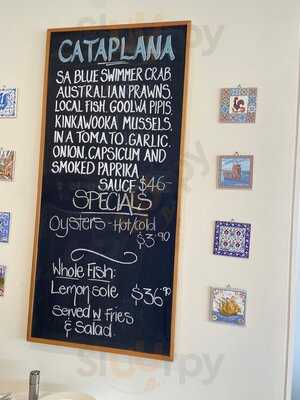 CATAPLANA
SA BLUE SWIMMER CRAB,
AUSTRALIAN PRAWNS,
LOCAL FISH, GOOLWA PIPIS,
KINKAWOOKA MUSSELS,
IN A TOMATO, GARLIC,
ONION, CAPSICUM AND
SMOKED PAPRIKA
SAUCE $46-
SPECIALS
Oysters - Hot/cold
$3.90
Whole Fish:
Lemon sole $36.90
Served W. Fries
& Salad.